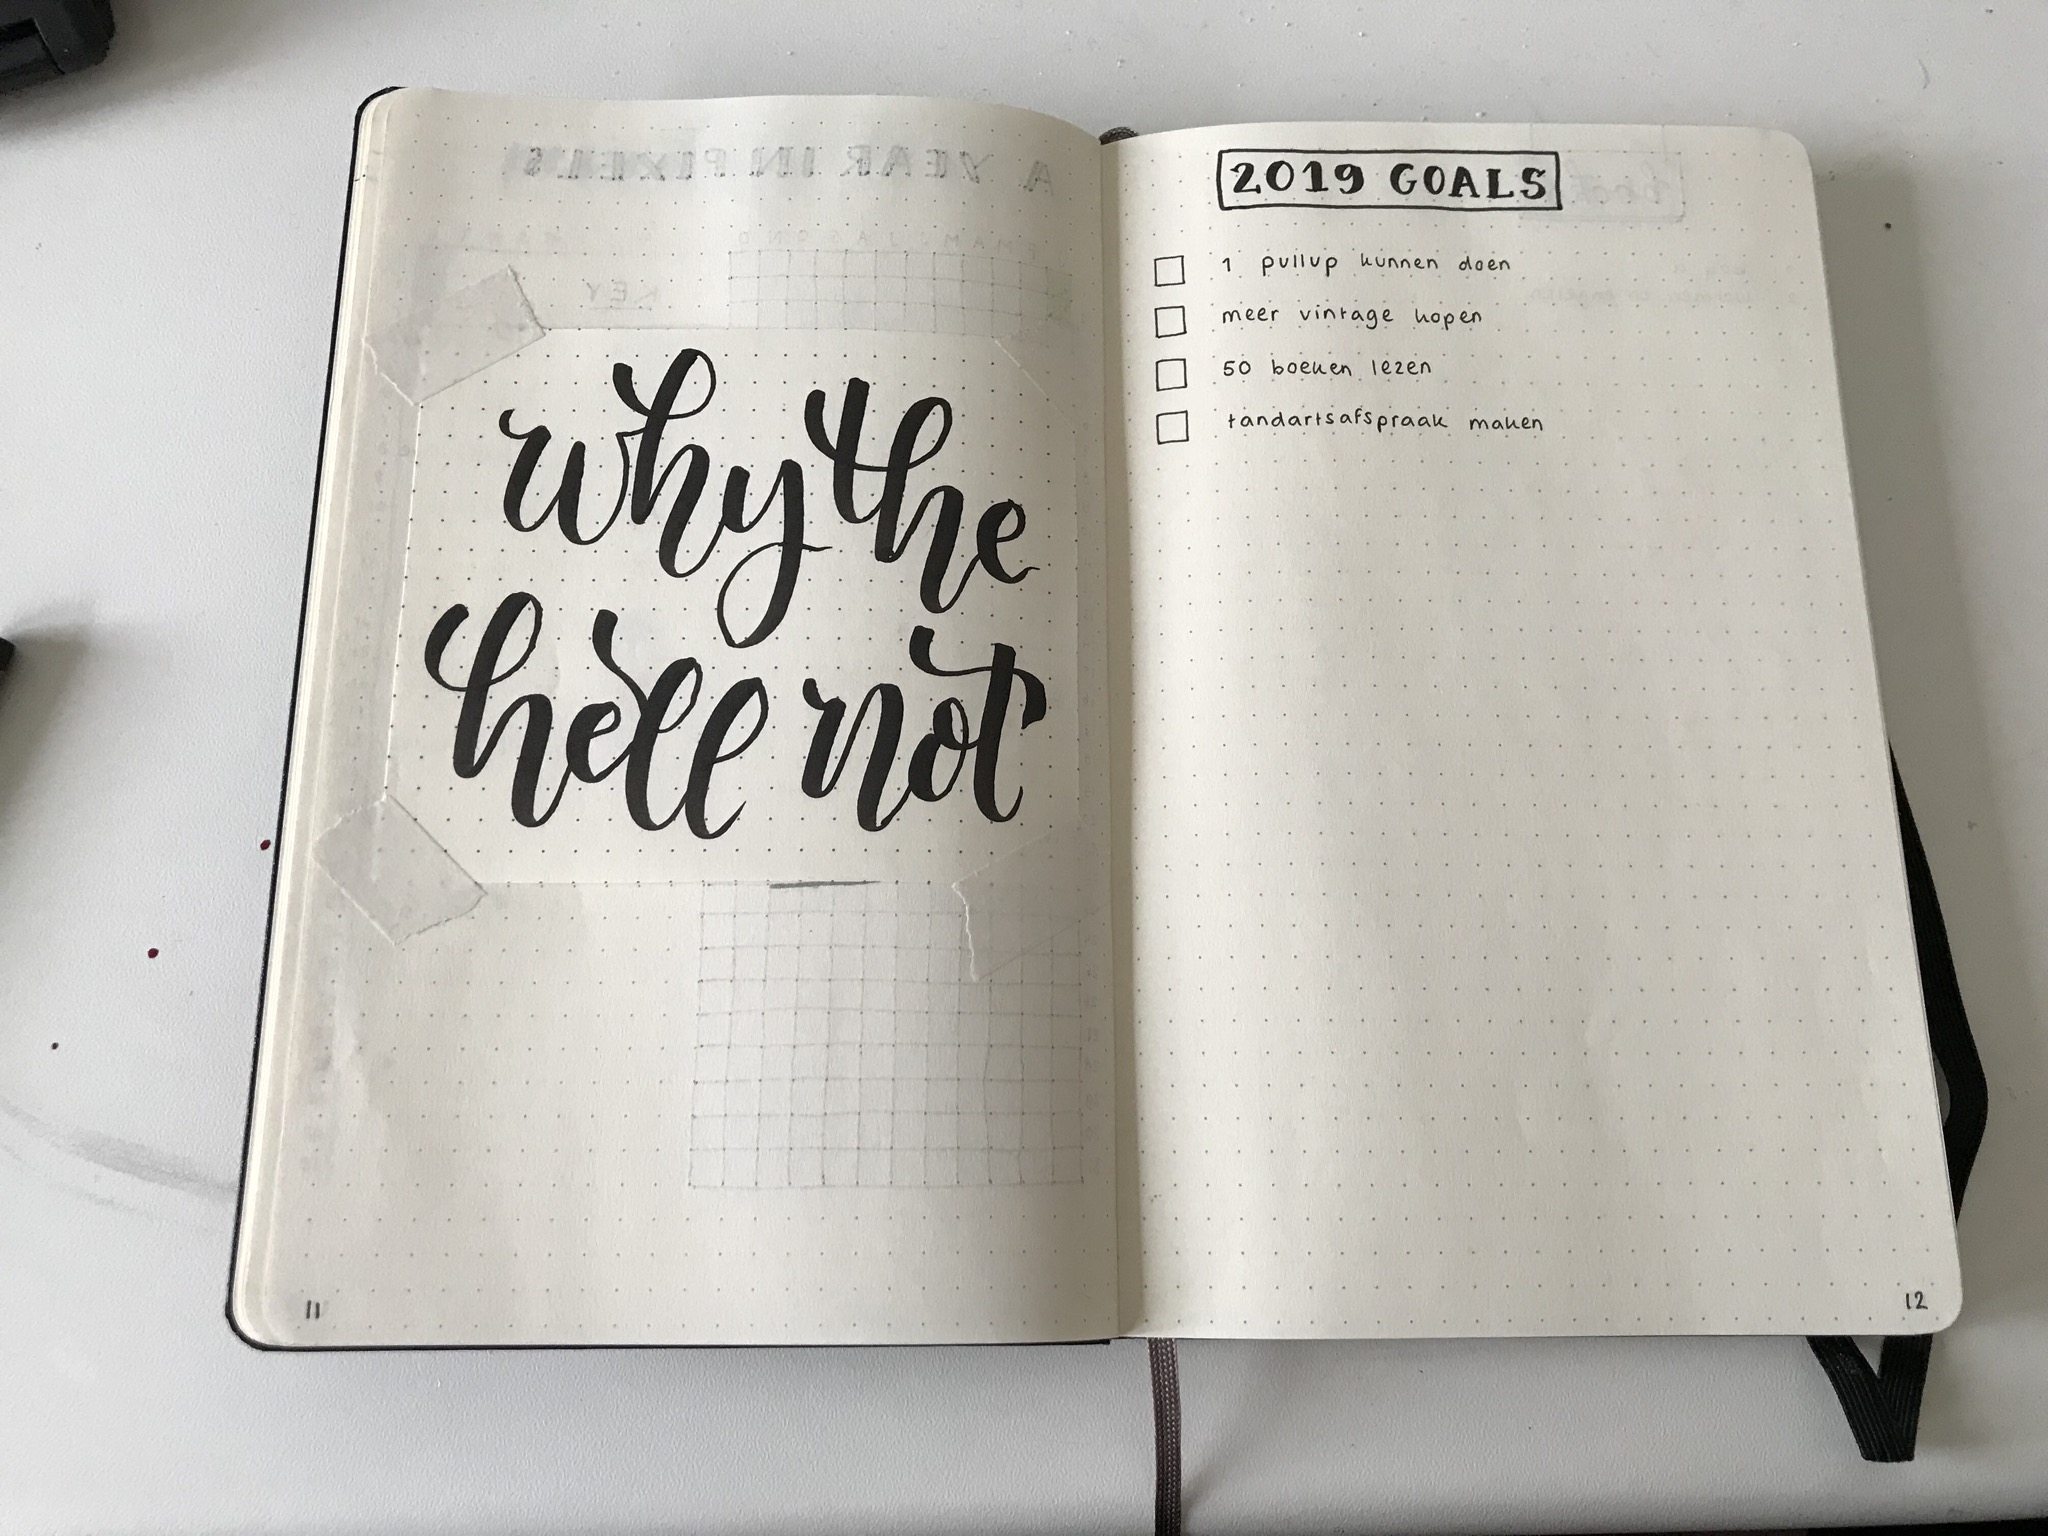 A YEAR IN PIXELS
KEY
why the
hell not
11
2019 GOALS
1 pullup kunnen doen
meer vintage kopen
50 boeken lezen
tandartsafspraak maken
12